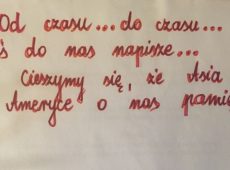 Od czasu... do czasu...
ś do nas napisze...
Cieszymy się, że Asia
Ameryce o nas pamię